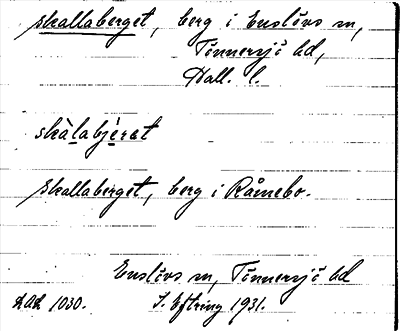 skallaberget, berg i Enslövs sn,
Tönnersjö hd,
Hall. l.
skàlabjérat
Skallaberget, berg i Råmebo.
Enslövs sn, Tönnersjö hd
DAL 1030. S. Eftring 1931.